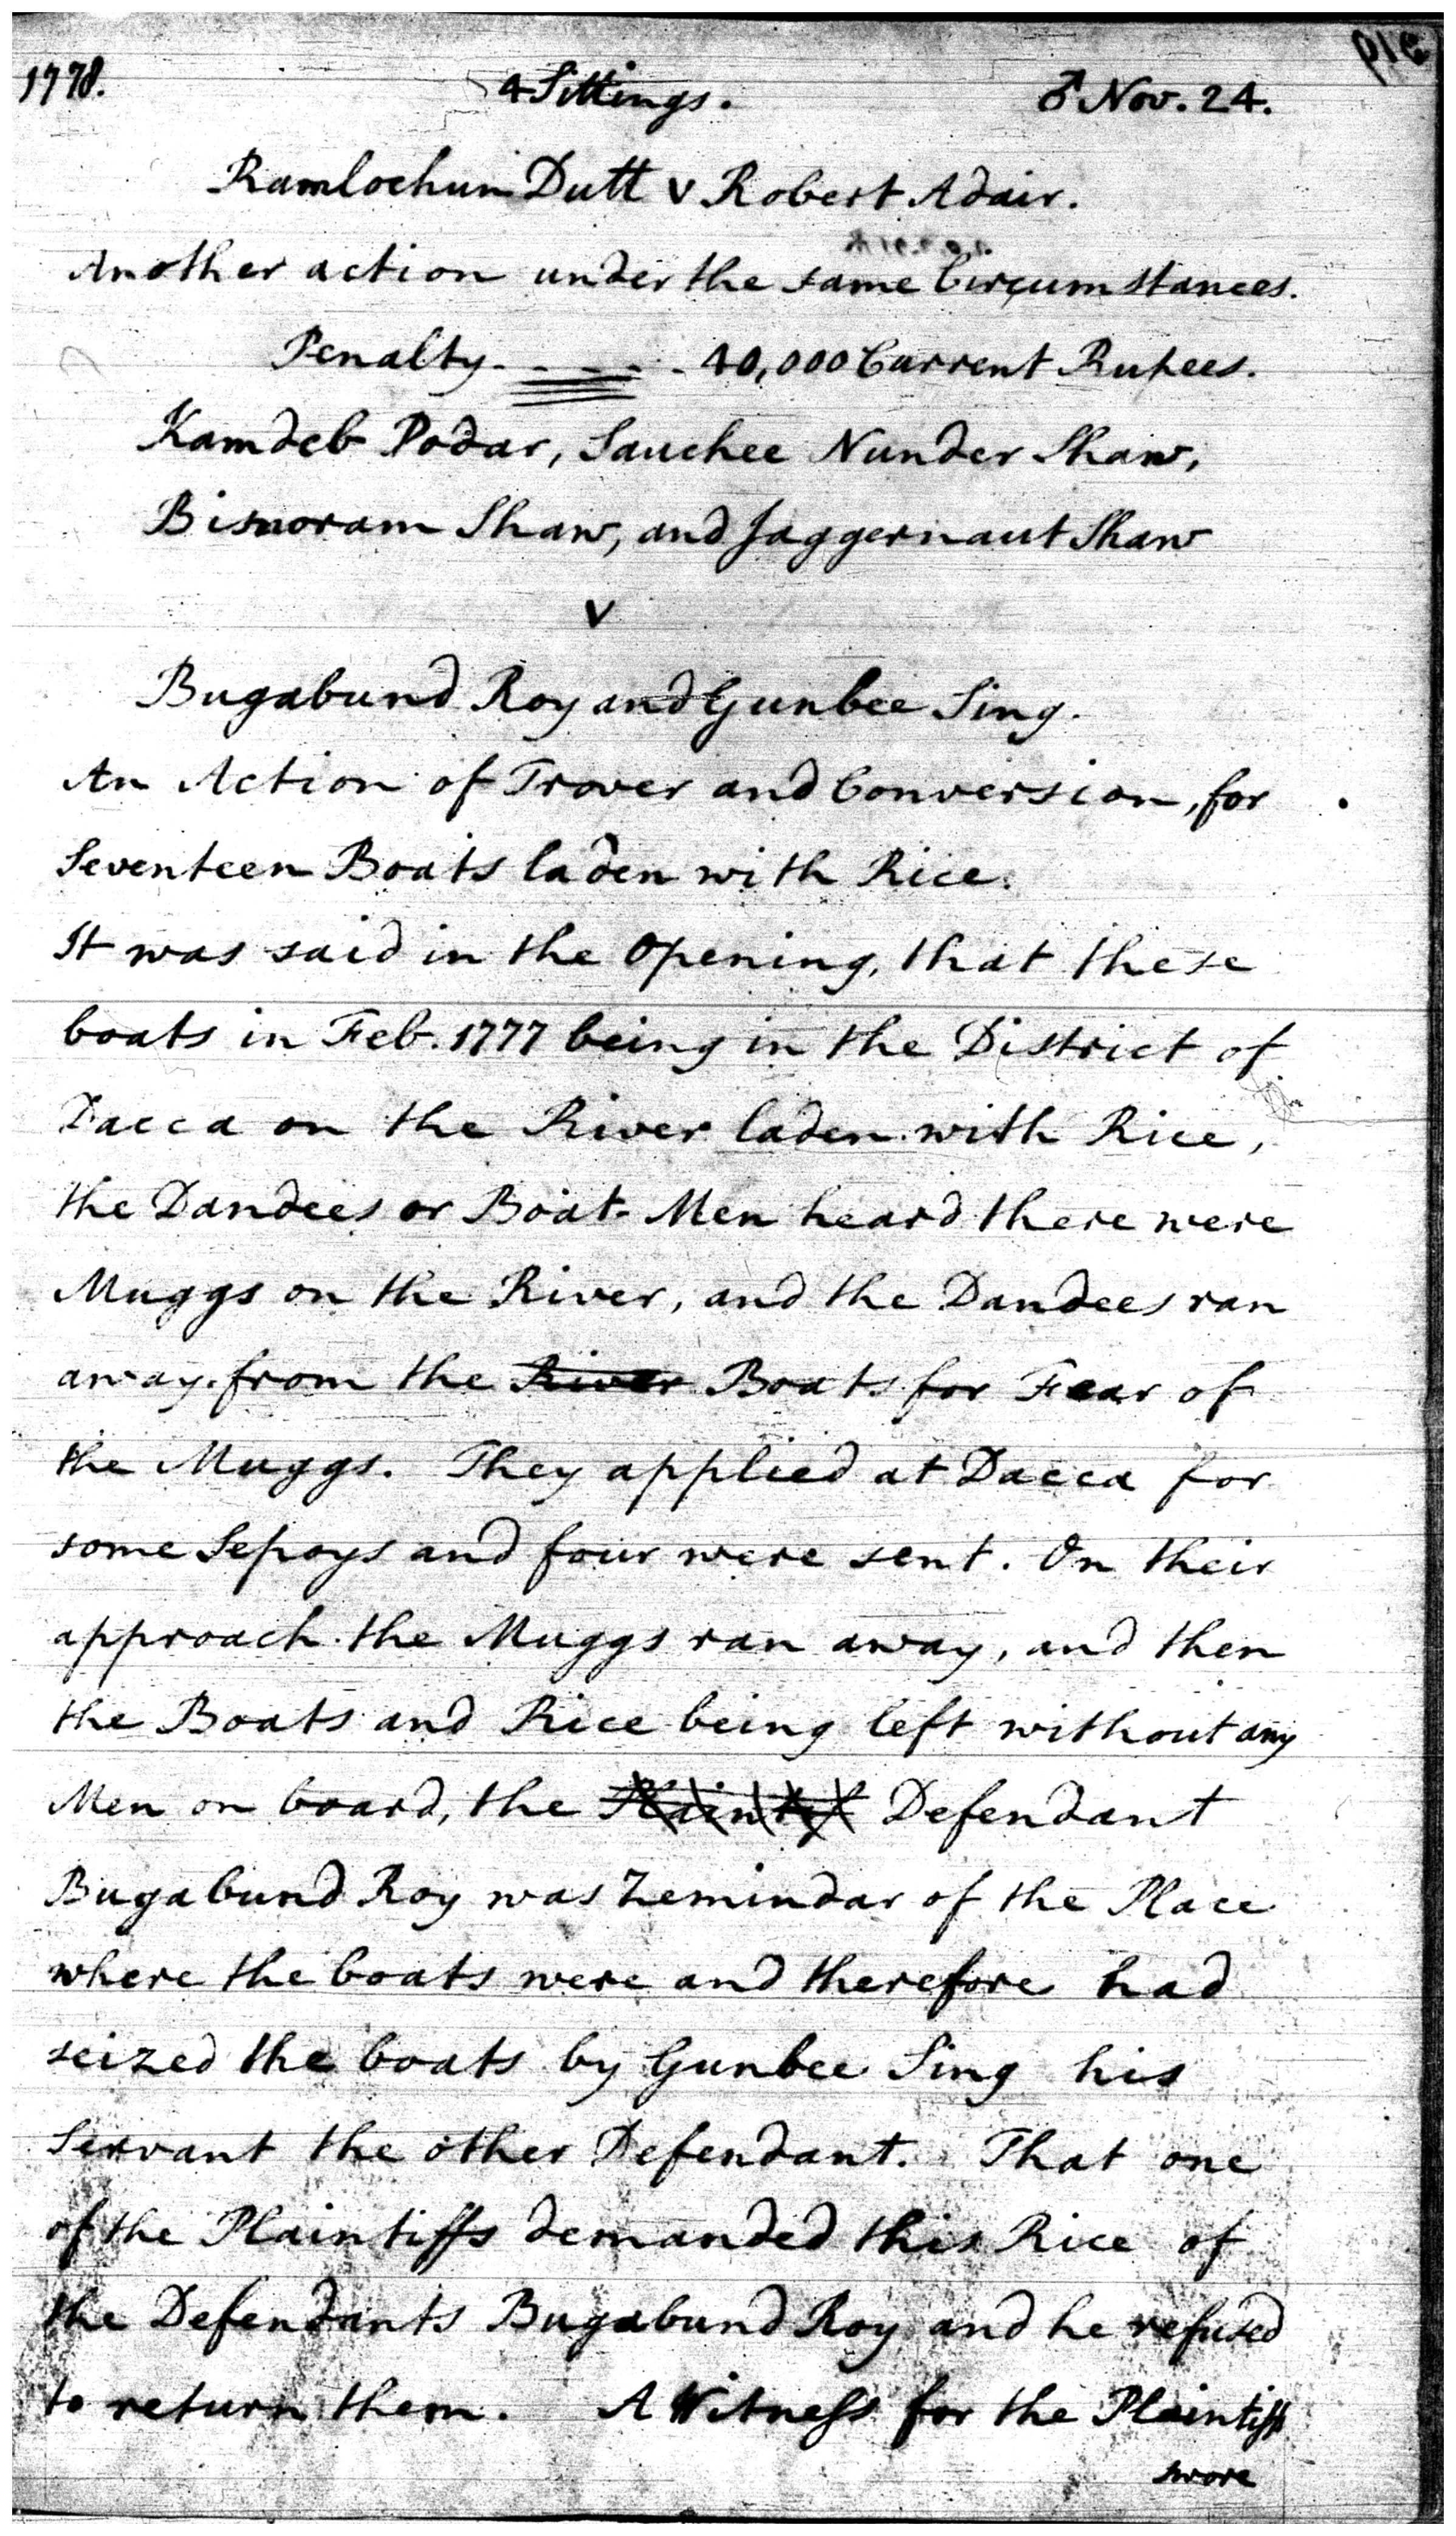 1778. 4 Sittings. ♂ Nov. 24.
Ramlochun Dutt v Robert Adair.
Another action under the same Circumstances.
Penalty - - - - - 40,000 Current Rupees.
Kamdeb Podar, Sauchee Nunder Shaw,
Bisnoram Shaw, and Jaggernaut Shaw
v
Bugabund Roy and Gunbee Sing.
An Action of Trover and Conversion, for
Seventeen Boats laden with Rice.
It was said in the Opening, that these
boats in Feb. 1777 being in the District of
Dacca on the River laden with Rice,
the Dandees or Boat-Men heard there were
Muggs on the River, and the Dandees ran
away from the River Boats for Fear of
the Muggs. They applied at Dacca for
some Sepoys and four were sent. On their
approach the Muggs ran away, and then
the Boats and Rice being left without any
Men on board, the Plaintif Defendant
Bugabund Roy was Zemindar of the Place
where the boats were and therefore had
seized the boats by Gunbee Sing his
Servant the other Defendant. That one
of the Plaintiffs demanded this Rice of
the Defendants Bugabund Roy and he refused
to return them. A Witness for the Plaintiff
swore